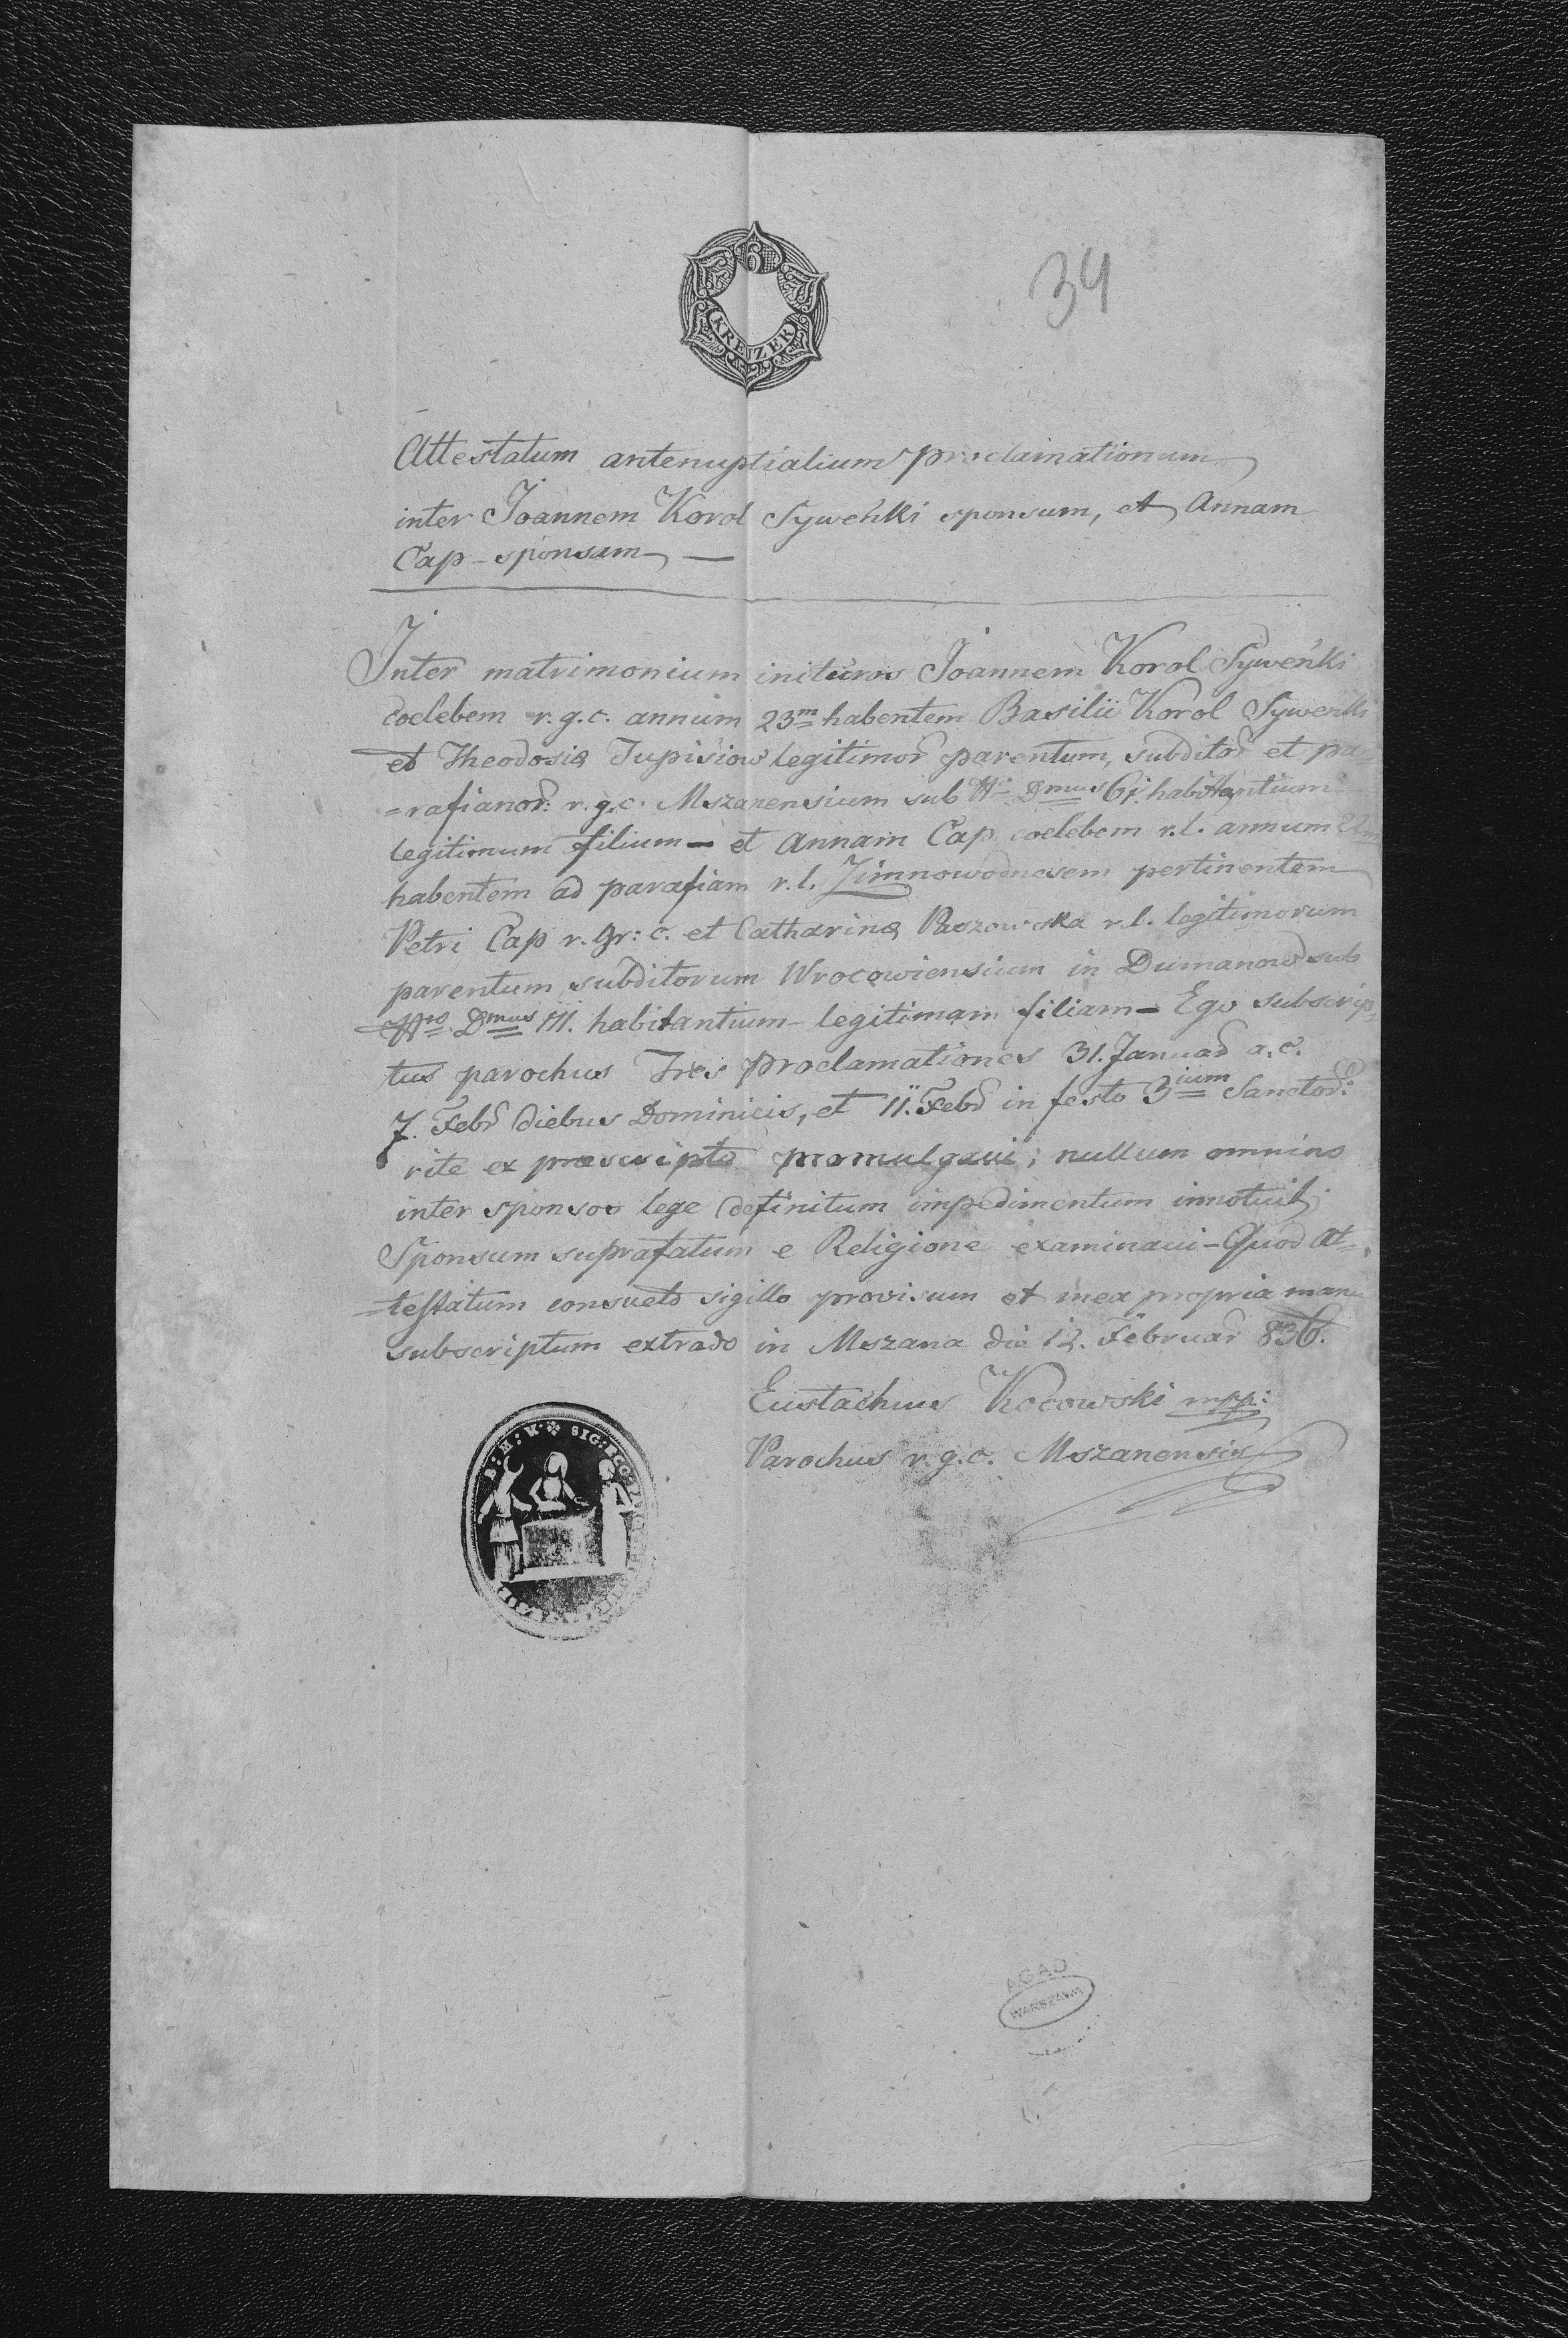 6
KREUZER
34
Attestatum antenuptialium proclamationum
inter Joannem Korol Syweńki sponsum, et Annam
Cap - sponsam —
Inter matrimonium inituros Joannem Korol Syweńki
coelebem r. g. c. annum 23m habentem Basilii Korol Syweńki
et Theodosiæ legitimor parentum, subditor et pa
=rafianor: r. g. c. Mszanensium sub Nr Dmus 61. habitantium
legitimum filium — et Annam Cap coelebem r. l. annum 22m
habentem ad parafiam r. l. Zimnowodnesem pertinentem
Petri Cap r. gr: c. et Catharinæ Paszowska r. l. legitimorum
parentum subditorum Wrocowiensium in Dumanow sub
Nro Dmus 111. habitantium - legitimam filiam - Ego subscrip
tus parochus Tres proclamationes 31. Januar a. c.
7. Febr diebus Dominicis, et 11. Febr in festo 3ium Sanctor:
rite ex præscripto promulgavi; nullum omnino
inter sponsos lege definitum impedimentum innotuit;
Sponsum suprafatum e Religione examinavi - Quod at=
=testatum consueto sigillo provisum et mea propria manu
subscriptum extrado in Mszana die 12. Februar 836.
Eustachius Kocowski mpp:
Parochus r. g. c. Mszanensis
SIG:
AGAD
WARSZAWA